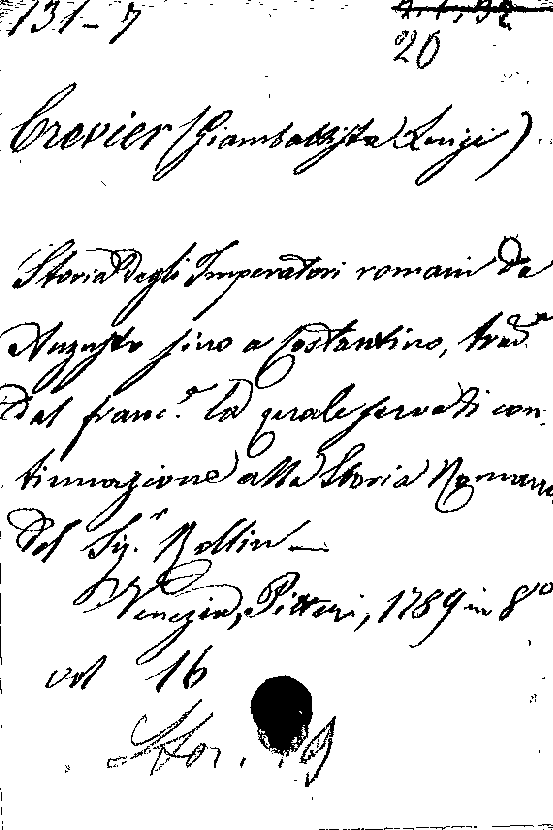 131-7
20
Crevier (Giambattista Luigi)
Storia degli Imperatori romani da
Augusto sino a Costantino, trad.ᵃ
dal franc.ᵉ la quale serve di con
tinuazione alla Storia Romana
del Sig.ʳ Rollin —
Venezia, Pitteri, 1789 in 8º
vol 16
Stor.